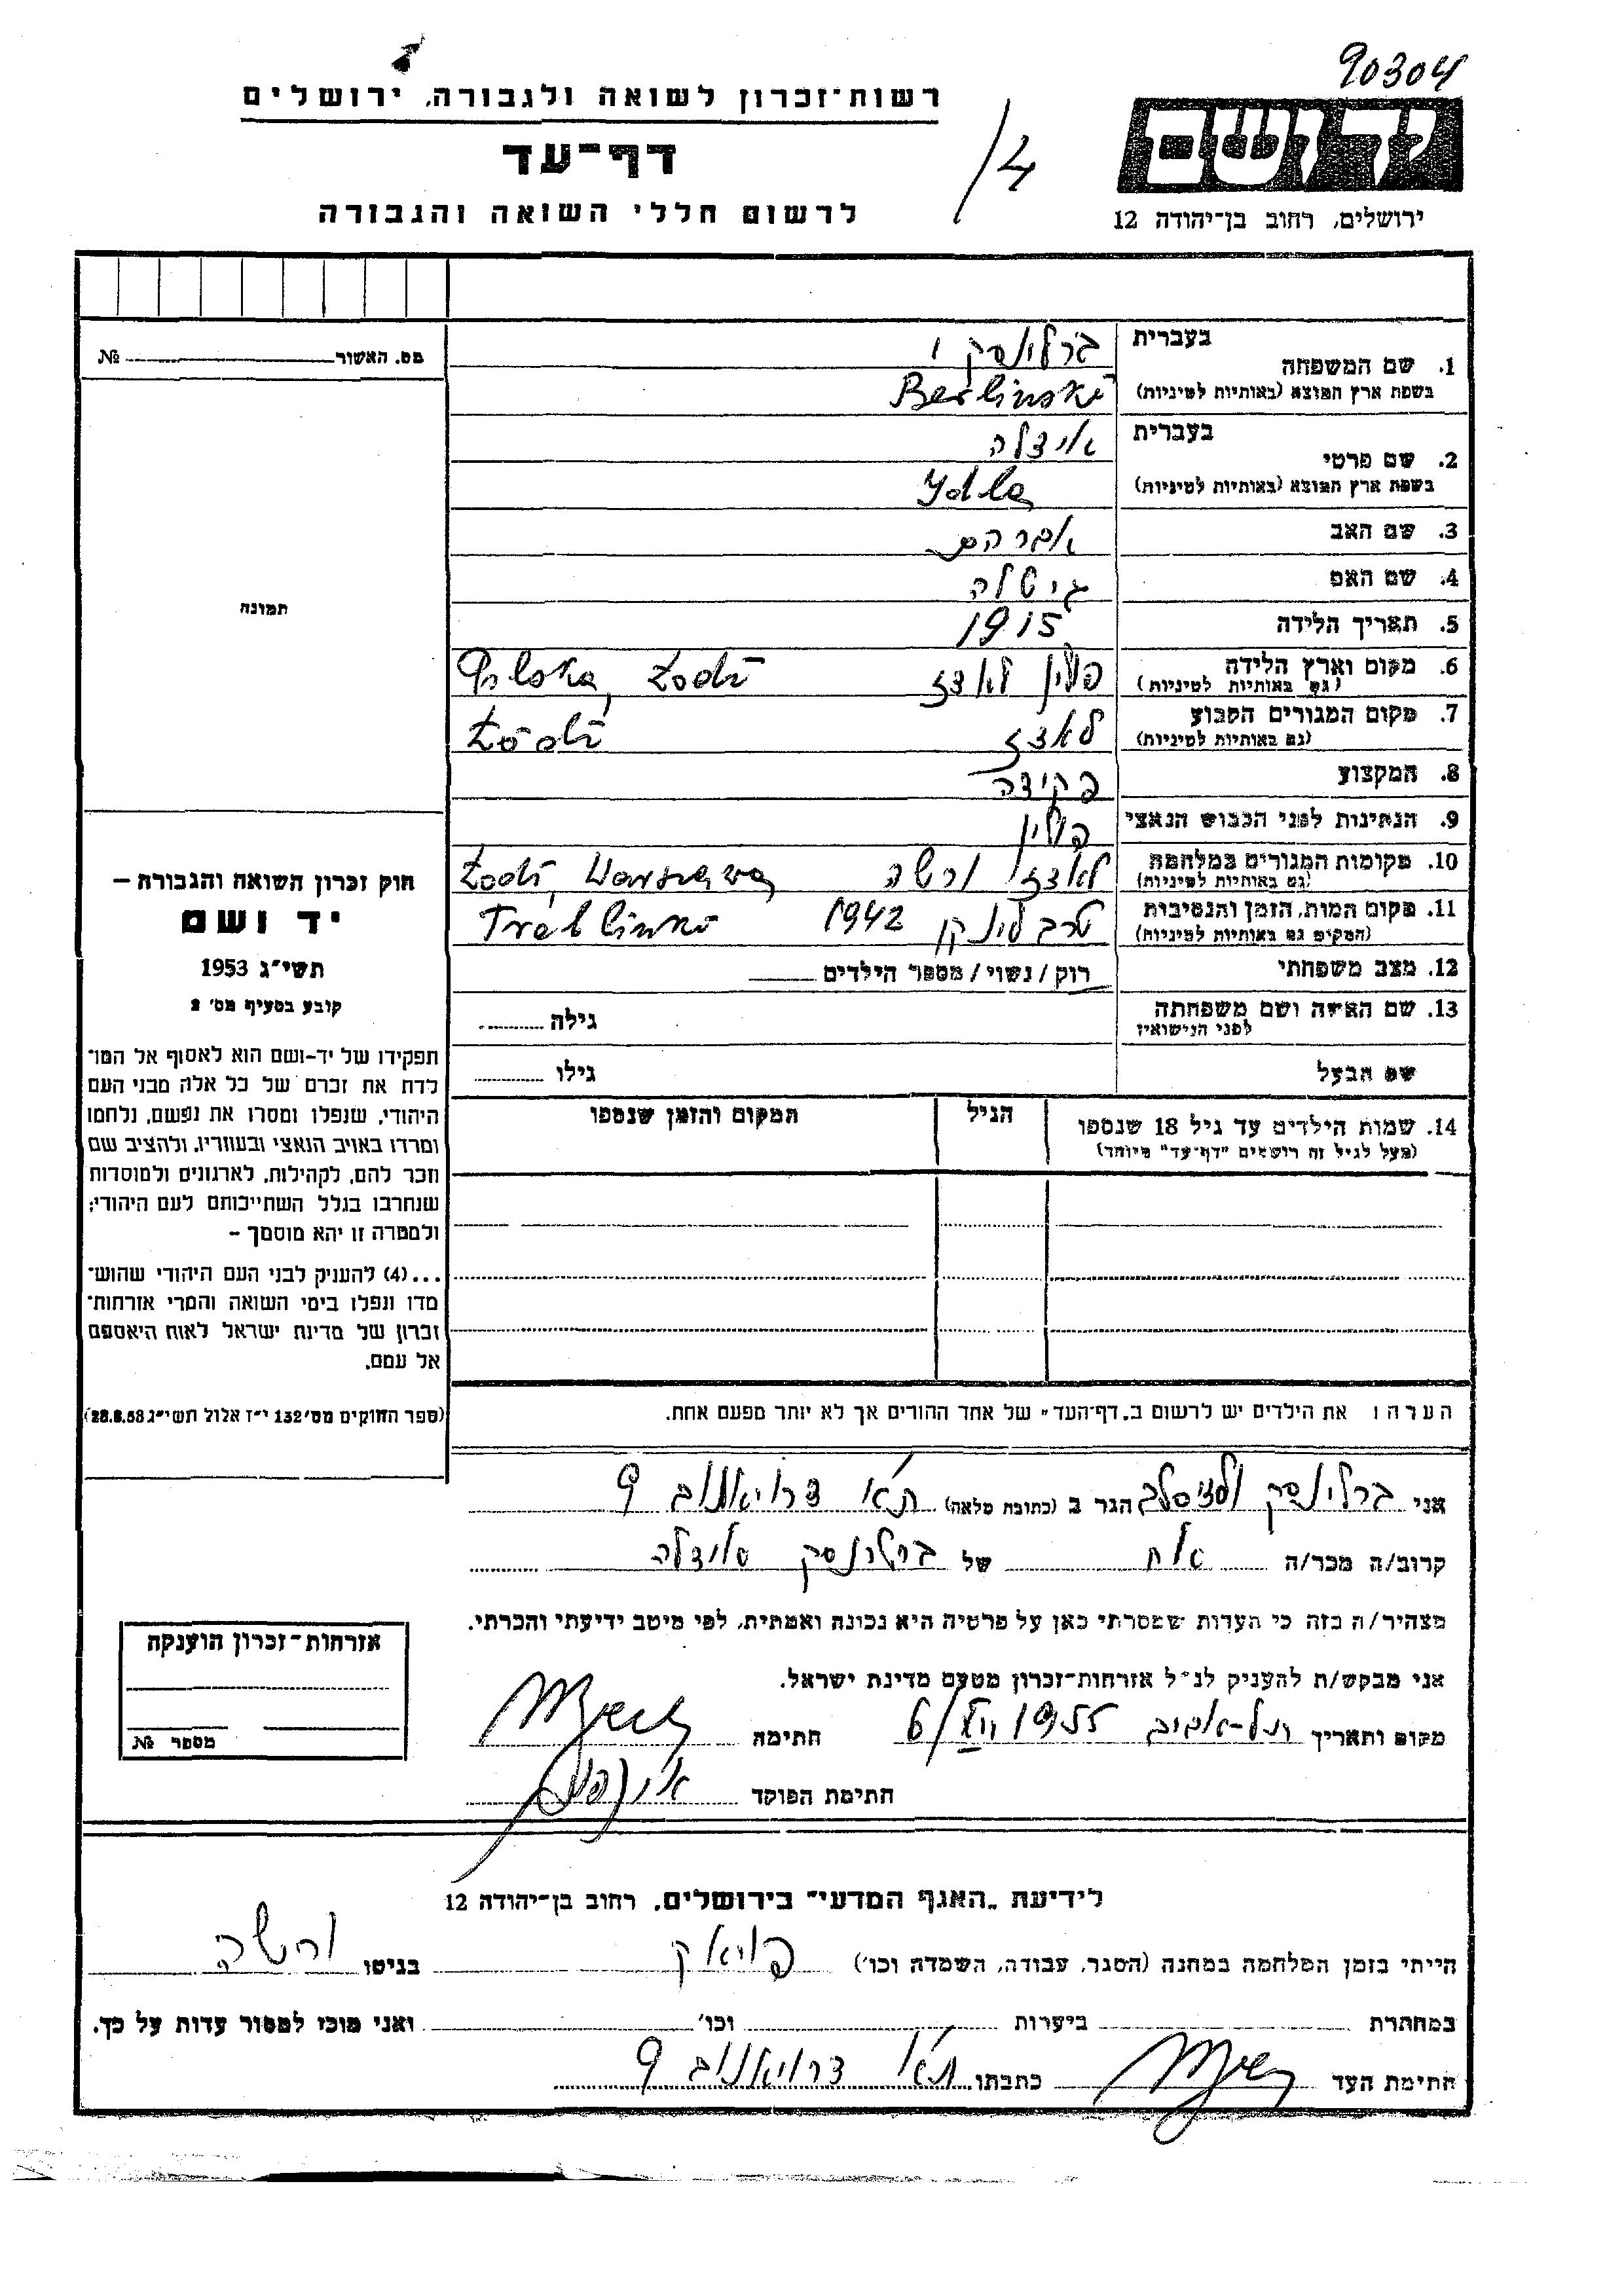 90304
רשות־זכרון לשואה ולגבורה, ירושלים
דף־עד
לרשום חללי השואה והגבורה
/4
ידושם
ירושלים, רחוב בן־יהודה 12
מס. האשור № 
תמונה
1. שם המשפחה בעברית ברלינסקי
בשפת ארץ המוצא (באותיות לטיניות) Berlinski
2. שם פרטי בעברית אידלה
בשפת ארץ המוצא (באותיות לטיניות) Ydla
3. שם האב אברהם
4. שם האם גיטלה
5. תאריך הלידה 1915
6. מקום וארץ הלידה (גם באותיות לטיניות) פולין לאדז Polska, Łodź
7. מקום המגורים הקבוע (גם באותיות לטיניות) לאדז Łódź
8. המקצוע פקידה
9. הנתינות לפני הכבוש הנאצי פולין
10. מקומות המגורים במלחמה (גם באותיות לטיניות) לאדז ורשה Łodź, Warszawa
11. מקום המות, הזמן והנסיבות (המקום גם באותיות לטיניות) טרבלינקי 1942 Treblinki
12. מצב משפחתי רוק / נשוי / מספר הילדים
13. שם האשה ושם משפחתה לפני הנישואין גילה
שם הבעל גילו
14. שמות הילדים עד גיל 18 שנספו הגיל המקום והזמן שנספו
(מעל לגיל זה רושמים "דף־עד" מיוחד)
הערה: את הילדים יש לרשום ב„דף־העד" של אחד ההורים אך לא יותר מפעם אחת.
חוק זכרון השואה והגבורה –
יד ושם
תשי"ג 1953
קובע בסעיף מס' 2
תפקידו של יד-ושם הוא לאסוף אל המו־
לדת את זכרם של כל אלה מבני העם
היהודי, שנפלו ומסרו את נפשם, נלחמו
ומרדו באויב הנאצי ובעוזריו, ולהציב שם
וזכר להם, לקהילות, לארגונים ולמוסדות
שנחרבו בגלל השתייכותם לעם היהודי;
ולמטרה זו יהא מוסמך –
...(4) להעניק לבני העם היהודי שהוש־
מדו ונפלו בימי השואה והמרי אזרחות־
זכרון של מדינת ישראל לאות היאספם
אל עמם.
(ספר החוקים מס' 132 י"ז אלול תשי"ג 28.8.53)
אני ברלינסקי הגר ב (כתובת מלאה) ת"א דרויאנוב 9
קרוב/ה מכר/ה אח של ברלינסקי אידלה
מצהיר/ה בזה כי העדות שמסרתי כאן על פרטיה היא נכונה ואמתית, לפי מיטב ידיעתי והכרתי.
אני מבקש/ת להעניק לנ"ל אזרחות־זכרון מטעם מדינת ישראל.
מקום ותאריך תל-אביב 6/XII 1955 חתימה
חתימת הפוקד
אזרחות־זכרון הוענקה
מספר №
לידיעת „האגף המדעי" בירושלים, רחוב בן־יהודה 12
הייתי בזמן המלחמה במחנה (הסגר, עבודה, השמדה וכו') פויאק בגיטו ורשה
במחתרת ביערות וכו' ואני מוכן למסור עדות על כך.
חתימת העד כתבתו ת"א דרויאנוב 9